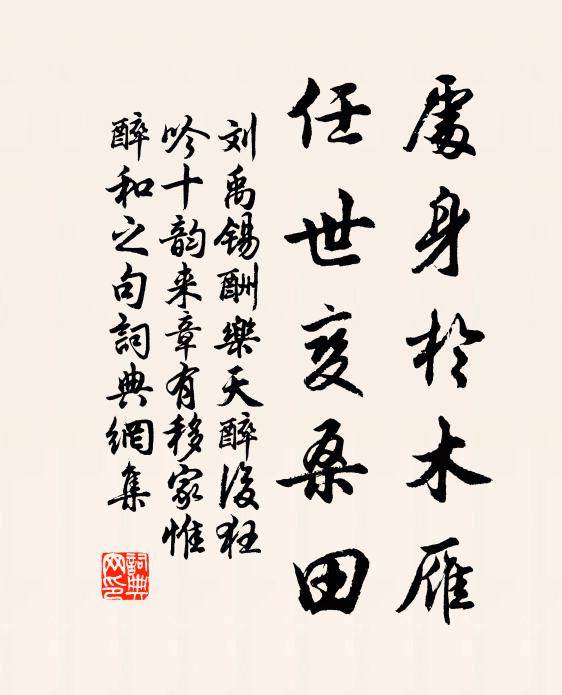 處身於木雁
任世变桑田
刘禹锡酬樂天醉後狂
吟十韵来章有移家惟
醉和之句詞典網集
詞典
网印